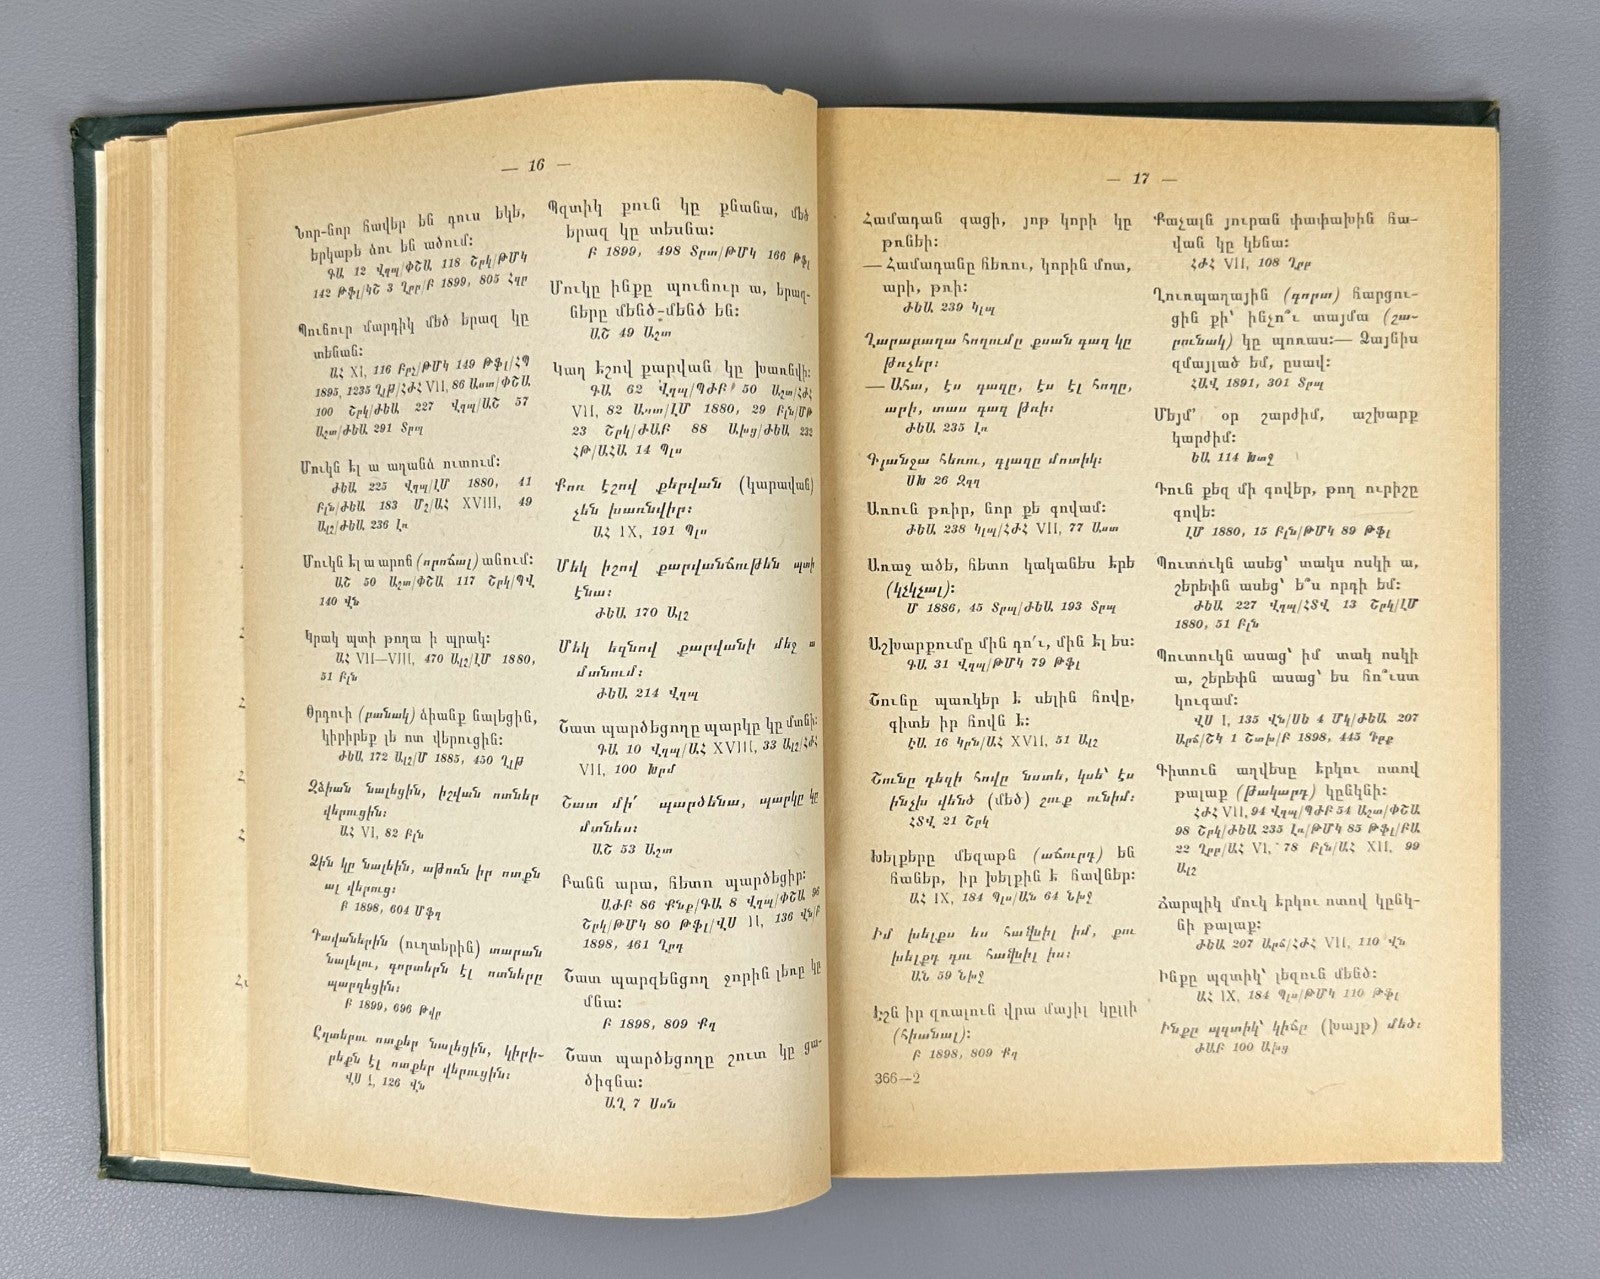 — 16 —
Նոր-նոր հավեր են դուս եկե,
երկաթե ձու են ածում։
ԳԱ 12 Վղպ/ՓՇԱ 118 Շրկ/ԹՄԿ
142 Թֆլ/ԿՇ 3 Ղրբ/Բ 1899, 805 Հզր
Պունուր մարդիկ մեծ երազ կը
տենան։
ԱՀ XI, 116 Բրչ/ԹՄԿ 149 Թֆլ/ՀՊ
1895, 1235 Ղլթ/ՀԺՀ VII, 86 Աստ/ՓՇԱ
100 Շրկ/ԺԵԱ 227 Վղպ/ԱՇ 57
Աշտ/ԺԵԱ 291 Տրպ
Մուկն էլ ա աղանձ ուտում։
ԺԵԱ 225 Վղպ/ԼՄ 1880, 41
Բլն/ԺԵԱ 183 Մշ/ԱՀ XVIII, 49
Ալշ/ԺԵԱ 236 Լռ
Մուկն էլ ա արոն (որոճալ) անում։
ԱՇ 50 Աշտ/ՓՇԱ 117 Շրկ/ՊՎ
140 Վն
Կրակ պտի թողա ի պրակ։
ԱՀ VII—VIII, 470 Ալշ/ԼՄ 1880,
51 Բլն
Օրդուի (բանակ) ձիանք նալեցին,
կիրիրեք լե ոտ վերուցին։
ԺԵԱ 172 Ալշ/Մ 1885, 450 Ղլթ
Ձձիան նալեցին, իշվան ոտներ
վերուցին։
ԱՀ VI, 82 Բլն
Ձին կը նալեին, աթոռն իր ոտքն
ալ վերուց։
Բ 1898, 604 Մֆղ
Դավաներին (ուղտերին) տարան
նալելու, գորտերն էլ ոտները
պարզեցին։
Բ 1899, 696 Թվր
Ըղտերու ոտքեր նալեցին, կիրի-
րեքն էլ ոտքեր վերուցին։
ՎՍ I, 126 Վն
Պզտիկ քուն կը քնանա, մեծ
երազ կը տեսնա։
Բ 1899, 498 Տրտ/ԹՄԿ 166 Թֆլ
Մուկը ինքը պունուր ա, երազ-
ները մենծ-մենծ են։
ԱՇ 49 Աշտ
Կաղ էշով քարվան կը խառնվի։
ԳԱ 62 Վղպ/ՊԺԲ 50 Աշտ/ՀԺՀ
VII, 82 Աստ/ԼՄ 1880, 29 Բլն/ՄԹ
23 Շրկ/ԺԱԲ 88 Ախց/ԺԵԱ 232
ՀԹ/ԱՀԱ 14 Պլս
Քոռ էշով քերվան (կարավան)
չեն խառնվիր։
ԱՀ IX, 191 Պլս
Մեկ իշով քարվանճութեն պտի
էնա։
ԺԵԱ 170 Ալշ
Մեկ եզնով քարվանի մեջ ա
մտնում։
ԺԵԱ 214 Վղպ
Շատ պարծեցողը պարկը կը մտնի։
ԳԱ 10 Վղպ/ԱՀ XVIII, 33 Ալշ/ՀԺՀ
VII, 100 Խրմ
Շատ մի՛ պարծենա, պարկը կը
մտնես։
ԱՇ 53 Աշտ
Բանն արա, հետո պարծեցիր։
ԱԺԲ 86 Քնք/ԳԱ 8 Վղպ/ՓՇԱ 96
Շրկ/ԹՄԿ 80 Թֆլ/ՎՍ II, 136 Վն/Բ
1898, 461 Ղրդ
Շատ պարզենցող ջորին լեռը կը
մնա։
Բ 1898, 809 Քղ
Շատ պարծեցողը շուտ կը ցա-
ծիգնա։
ԱՂ 7 Սսն
— 17 —
Համադան գացի, յոթ կորի կը
թռնեի։
— Համադանը հեռու, կորին մոտ,
արի, թռի։
ԺԵԱ 239 Կլպ
Ղարաբաղա հողումը քսան գազ կը
թռչեր։
— Ահա, էս գազը, էս էլ հողը,
արի, տաս գազ թռի։
ԺԵԱ 235 Լռ
Գյանջա հեռու, գյազը մոտիկ։
ՍԽ 26 Զգղ
Առուն թռիր, նոր քե գովամ։
ԺԵԱ 238 Կլպ/ՀԺՀ VII, 77 Աստ
Առաջ ածե, հետո կականես երե
(կչկչալ)։
Մ 1886, 45 Տրպ/ԺԵԱ 193 Տրպ
Աշխարքումը մին դո՛ւ, մին էլ ես։
ԳԱ 31 Վղպ/ԹՄԿ 79 Թֆլ
Շունը պառկեր է սելին հովը,
գիտե իր հովն է։
ԷԱ 16 Կրն/ԱՀ XVII, 51 Ալշ
Շունը դեզի հովը նստե, կսե՝ էս
ինչխ վենծ (մեծ) շուք ունիմ։
ՀՏՎ 21 Շրկ
Խելքերը մեզաթն (աճուրդ) են
հաներ, իր խելքին է հավներ։
ԱՀ IX, 184 Պլս/ԱՆ 64 Նխջ
Իմ խելքս ես հավնիլ իմ, քու
խելքդ դու հավնիլ իս։
ԱՆ 59 Նխջ
Էշն իր զռալուն վրա մայիլ կըլլի
(հիանալ)։
Բ 1898, 809 Քղ
366—2
Քաչալն յուրան փափախին հա-
վան կը կենա։
ՀԺՀ VII, 108 Ղրբ
Ղուռպաղային (գորտ) հարցու-
ցին քի՝ ինչո՞ւ տայմա (շա-
րունակ) կը պոռաս։— Ձայնիս
զմայլած եմ, ըսավ։
ՀԱՎ 1891, 301 Տրպ
Մեյմ՚ օր շարժիմ, աշխարք
կարժիմ։
ԵԱ 114 Խտջ
Դուն քեզ մի գովեր, թող ուրիշը
գովե։
ԼՄ 1880, 15 Բլն/ԹՄԿ 89 Թֆլ
Պուտուկն ասեց՝ տակս ոսկի ա,
շերեփն ասեց՝ ե՞ս որդի եմ։
ԺԵԱ 227 Վղպ/ՀՏՎ 13 Շրկ/ԼՄ
1880, 51 Բլն
Պուտուկն ասաց՝ իմ տակ ոսկի
ա, շերեփն ասաց՝ ես հո՞ւստ
կուգամ։
ՎՍ I, 135 Վն/ՍԵ 4 Մկ/ԺԵԱ 207
Արճ/ՇԿ 1 Շտխ/Բ 1898, 445 Դրբ
Գիտուն աղվեսը երկու ոտով
թալաք (թակարդ) կընկնի։
ՀԺՀ VII, 94 Վղպ/ՊԺԲ 54 Աշտ/ՓՇԱ
98 Շրկ/ԺԵԱ 235 Լռ/ԹՄԿ 85 Թֆլ/ԲԱ
22 Ղրբ/ԱՀ VI, 78 Բլն/ԱՀ XII, 99
Ալշ
Ճարպիկ մուկ երկու ոտով կընկ-
նի թալաք։
ԺԵԱ 207 Արճ/ՀԺՀ VII, 110 Վն
Ինքը պզտիկ՝ լեզուն մենծ։
ԱՀ IX, 184 Պլս/ԹՄԿ 110 Թֆլ
Ինքը պզտիկ՝ կիճը (խայթ) մեծ։
ԺԱԲ 100 Ախց